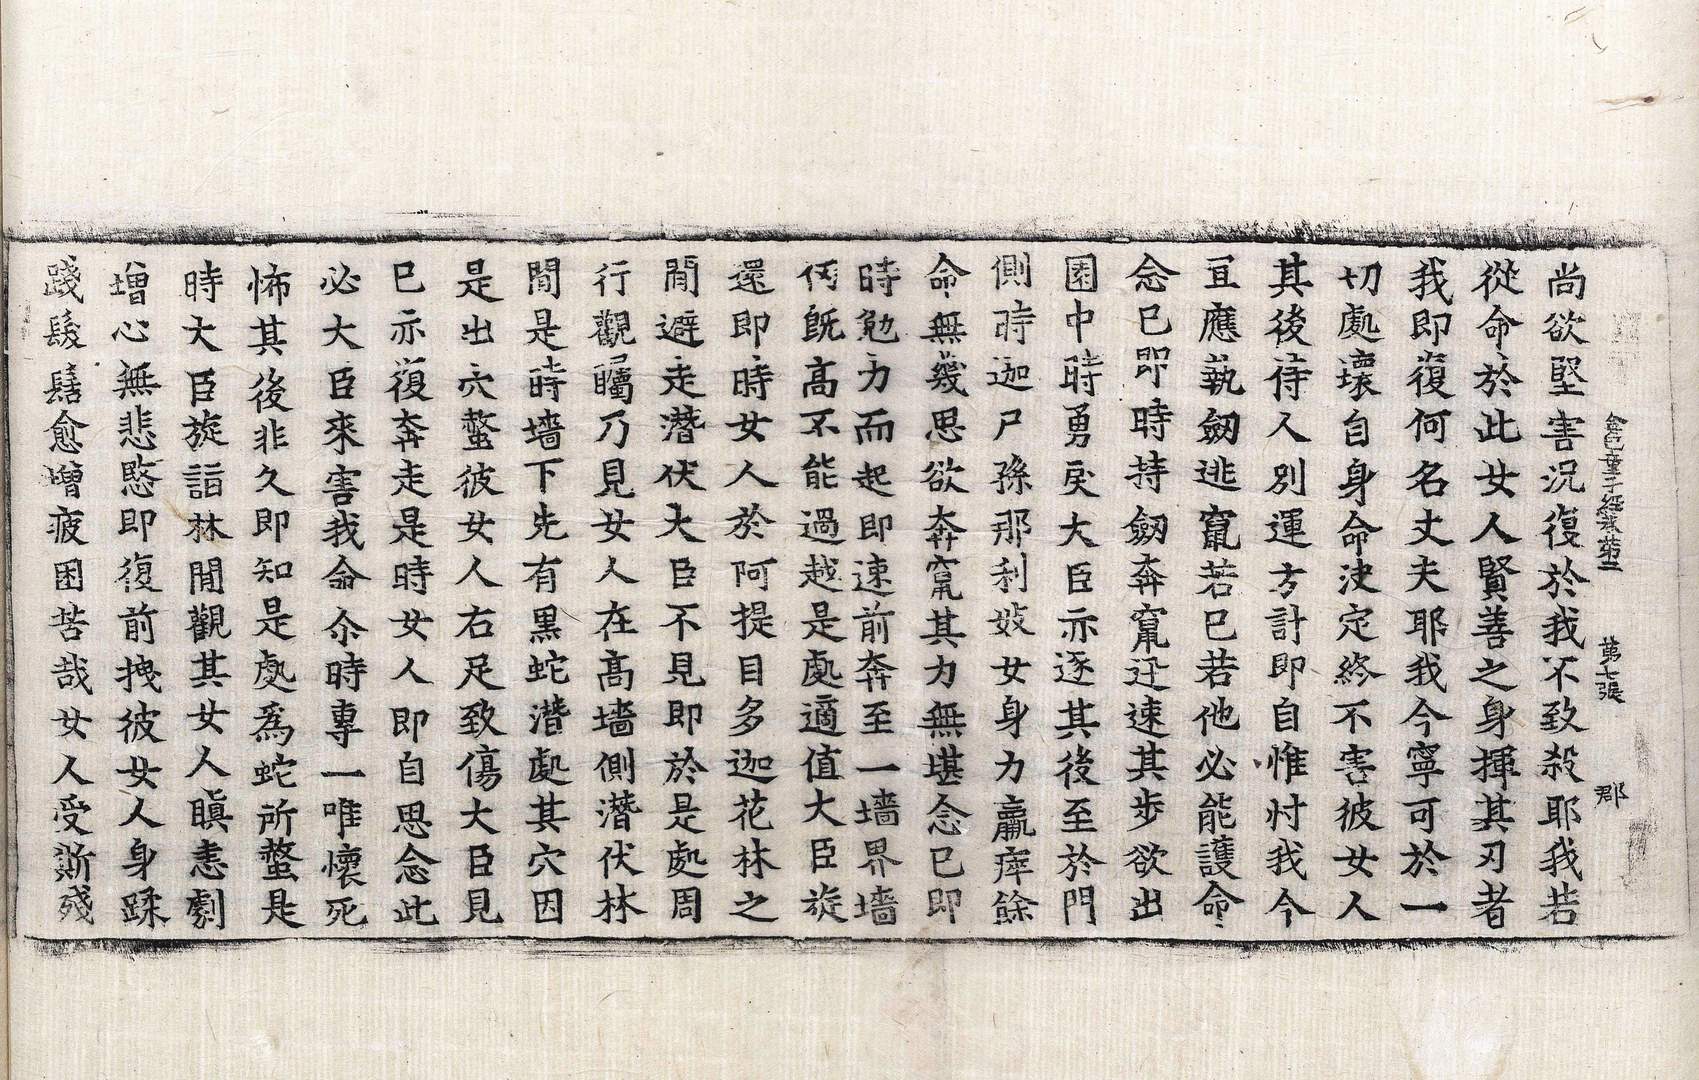 金色童子經卷第三　第七張　郡
尚欲堅害況復於我不致殺耶我若
從命於此女人賢善之身揮其刃者
我即復何名丈夫耶我今寧可於一
切處壞自身命決定終不害彼女人
其後待人別運方計即自惟忖我今
宜應執劒逃竄若已若他必能護命
念已即時持劒奔竄迅速其步欲出
園中時勇戾大臣亦逐其後至於門
側時迦尸孫那利妓女身力羸瘁餘
命無幾思欲奔竄其力無堪念已即
時勉力而起即速前奔至一墻界墻
仞既高不能過越是處適值大臣旋
還即時女人於阿提目多迦花林之
閒避走潛伏大臣不見即於是處周
行觀矚乃見女人在高墻側潛伏林
閒是時墻下先有黑蛇潛處其穴因
是出穴螫彼女人右足致傷大臣見
已亦復奔走是時女人即自思念此
必大臣來害我命尒時專一唯懷死
怖其後非久即知是處爲蛇所螫是
時大臣旋詣林閒觀其女人瞋恚劇
增心無悲愍即復前拽彼女人身蹂
踐髮髻愈增疲困苦哉女人受斯殘